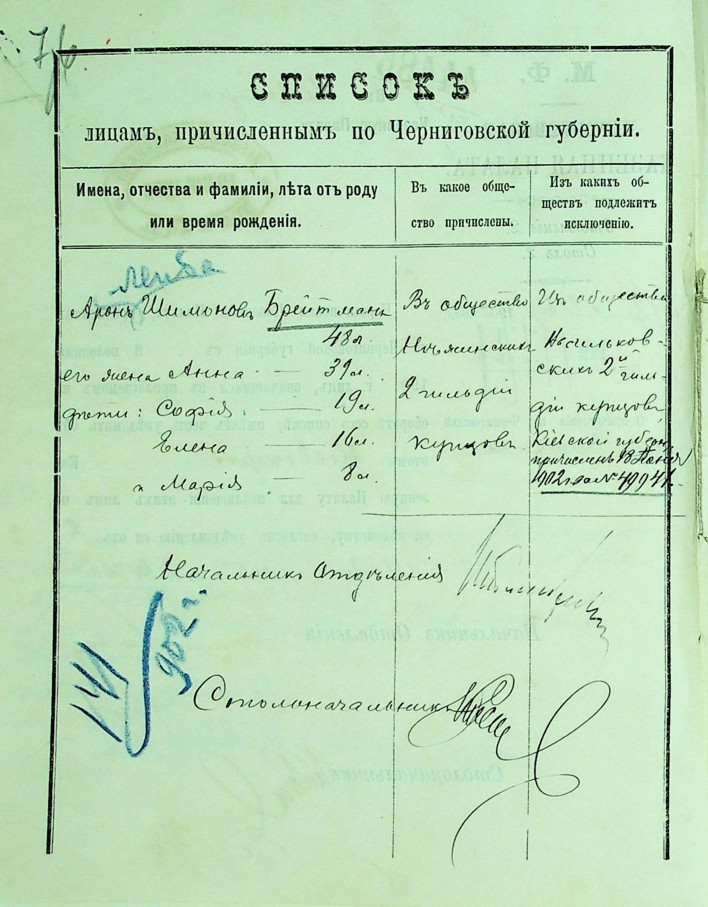 7/6
СПИСОКЪ
лицамъ, причисленнымъ по Черниговской губерніи.
Имена, отчества и фамиліи, лѣта отъ роду или время рожденія.
Въ какое обще-
ство причислены.
Изъ какихъ об-
ществъ подлежитъ
исключенію.
Лейба
Аронъ Шимоновъ Брейтманъ
48 л.
его жена Анна — 39 л.
дѣти: Софія — 19 л.
Елена — 16 л.
и Марія — 8 л.
Въ общество
Нѣжинскихъ
2 гильдіи
купцовъ.
Изъ общества
Васильков-
скихъ 2й гиль-
діи купцовъ
Кіевской губерн.
причисленъ 18
1902 г. за № 49941.
Начальникъ Отдѣленія
14/
902 г.
Столоначальникъ